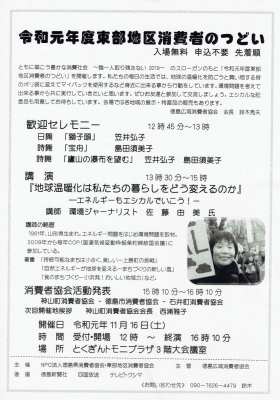 令和元年度東部地区消費者のつどい
入場無料 申込不要 先着順
ともに築こう豊かな消費社会 ～誰一人取り残さない 2019～ のスローガンのもと「令和元年度東部
地区消費者のつどい」を開催します。私たちの毎日の生活では、地球の温暖化を防ごうと買い物する時
のポリ袋に変えてマイバックを使用するなど身近に出来る事から行動をしています。環境問題を考えて
出来る事から共に実行していきたいと思います。ぜひお友達と参加して交流しましょう。エシカルな記
念品も用意してお待ちしています。会場では各地域の展示・特産品の販売もあります。
徳島広域消費者協会 会長 鈴木秀夫
歓迎セレモニー 12時45分～13時
日舞 「獅子頭」 笠井弘子
詩舞 「宝舟」 島田須美子
詩舞 「廬山の瀑布を望む」 笠井弘子 島田須美子
講演 13時30分～15時
『地球温暖化は私たちの暮らしをどう変えるのか』
ーエネルギーもエシカルでいこう！ー
講師 環境ジャーナリスト 佐藤由美氏
講師の略歴
1961年、山形県生まれ。エネルギー問題をはじめ環境問題を取材。
2009年から毎年COP(国連気候変動枠組条約締結国会議)に
参加している。
【著書】「持続可能なまちは小さく、美しい－上勝町の挑戦」
「自然エネルギーが地球を変える－まちづくりの新しい風」
「食のまちづくり－小浜発！おいしい地域力」など
消費者協会活動発表 15時10分～16時10分
神山町消費者協会 - 徳島市消費者協会 - 石井町消費者協会
次回開催地挨拶 神山町消費者協会会長 西浦雅子
開催日 令和元年11月16日(土)
時間 受付・開場 12時 ～ 終演 16時10分
場所 とくぎんトモニプラザ3階大会議室
主催 NPO法人徳島県消費者協会・東部地区消費者協会 主管 徳島広域消費者協会
後援 徳島新聞社 四国放送 テレビトクシマ
《お問い合わせ先》 090-7626-4479 鈴木